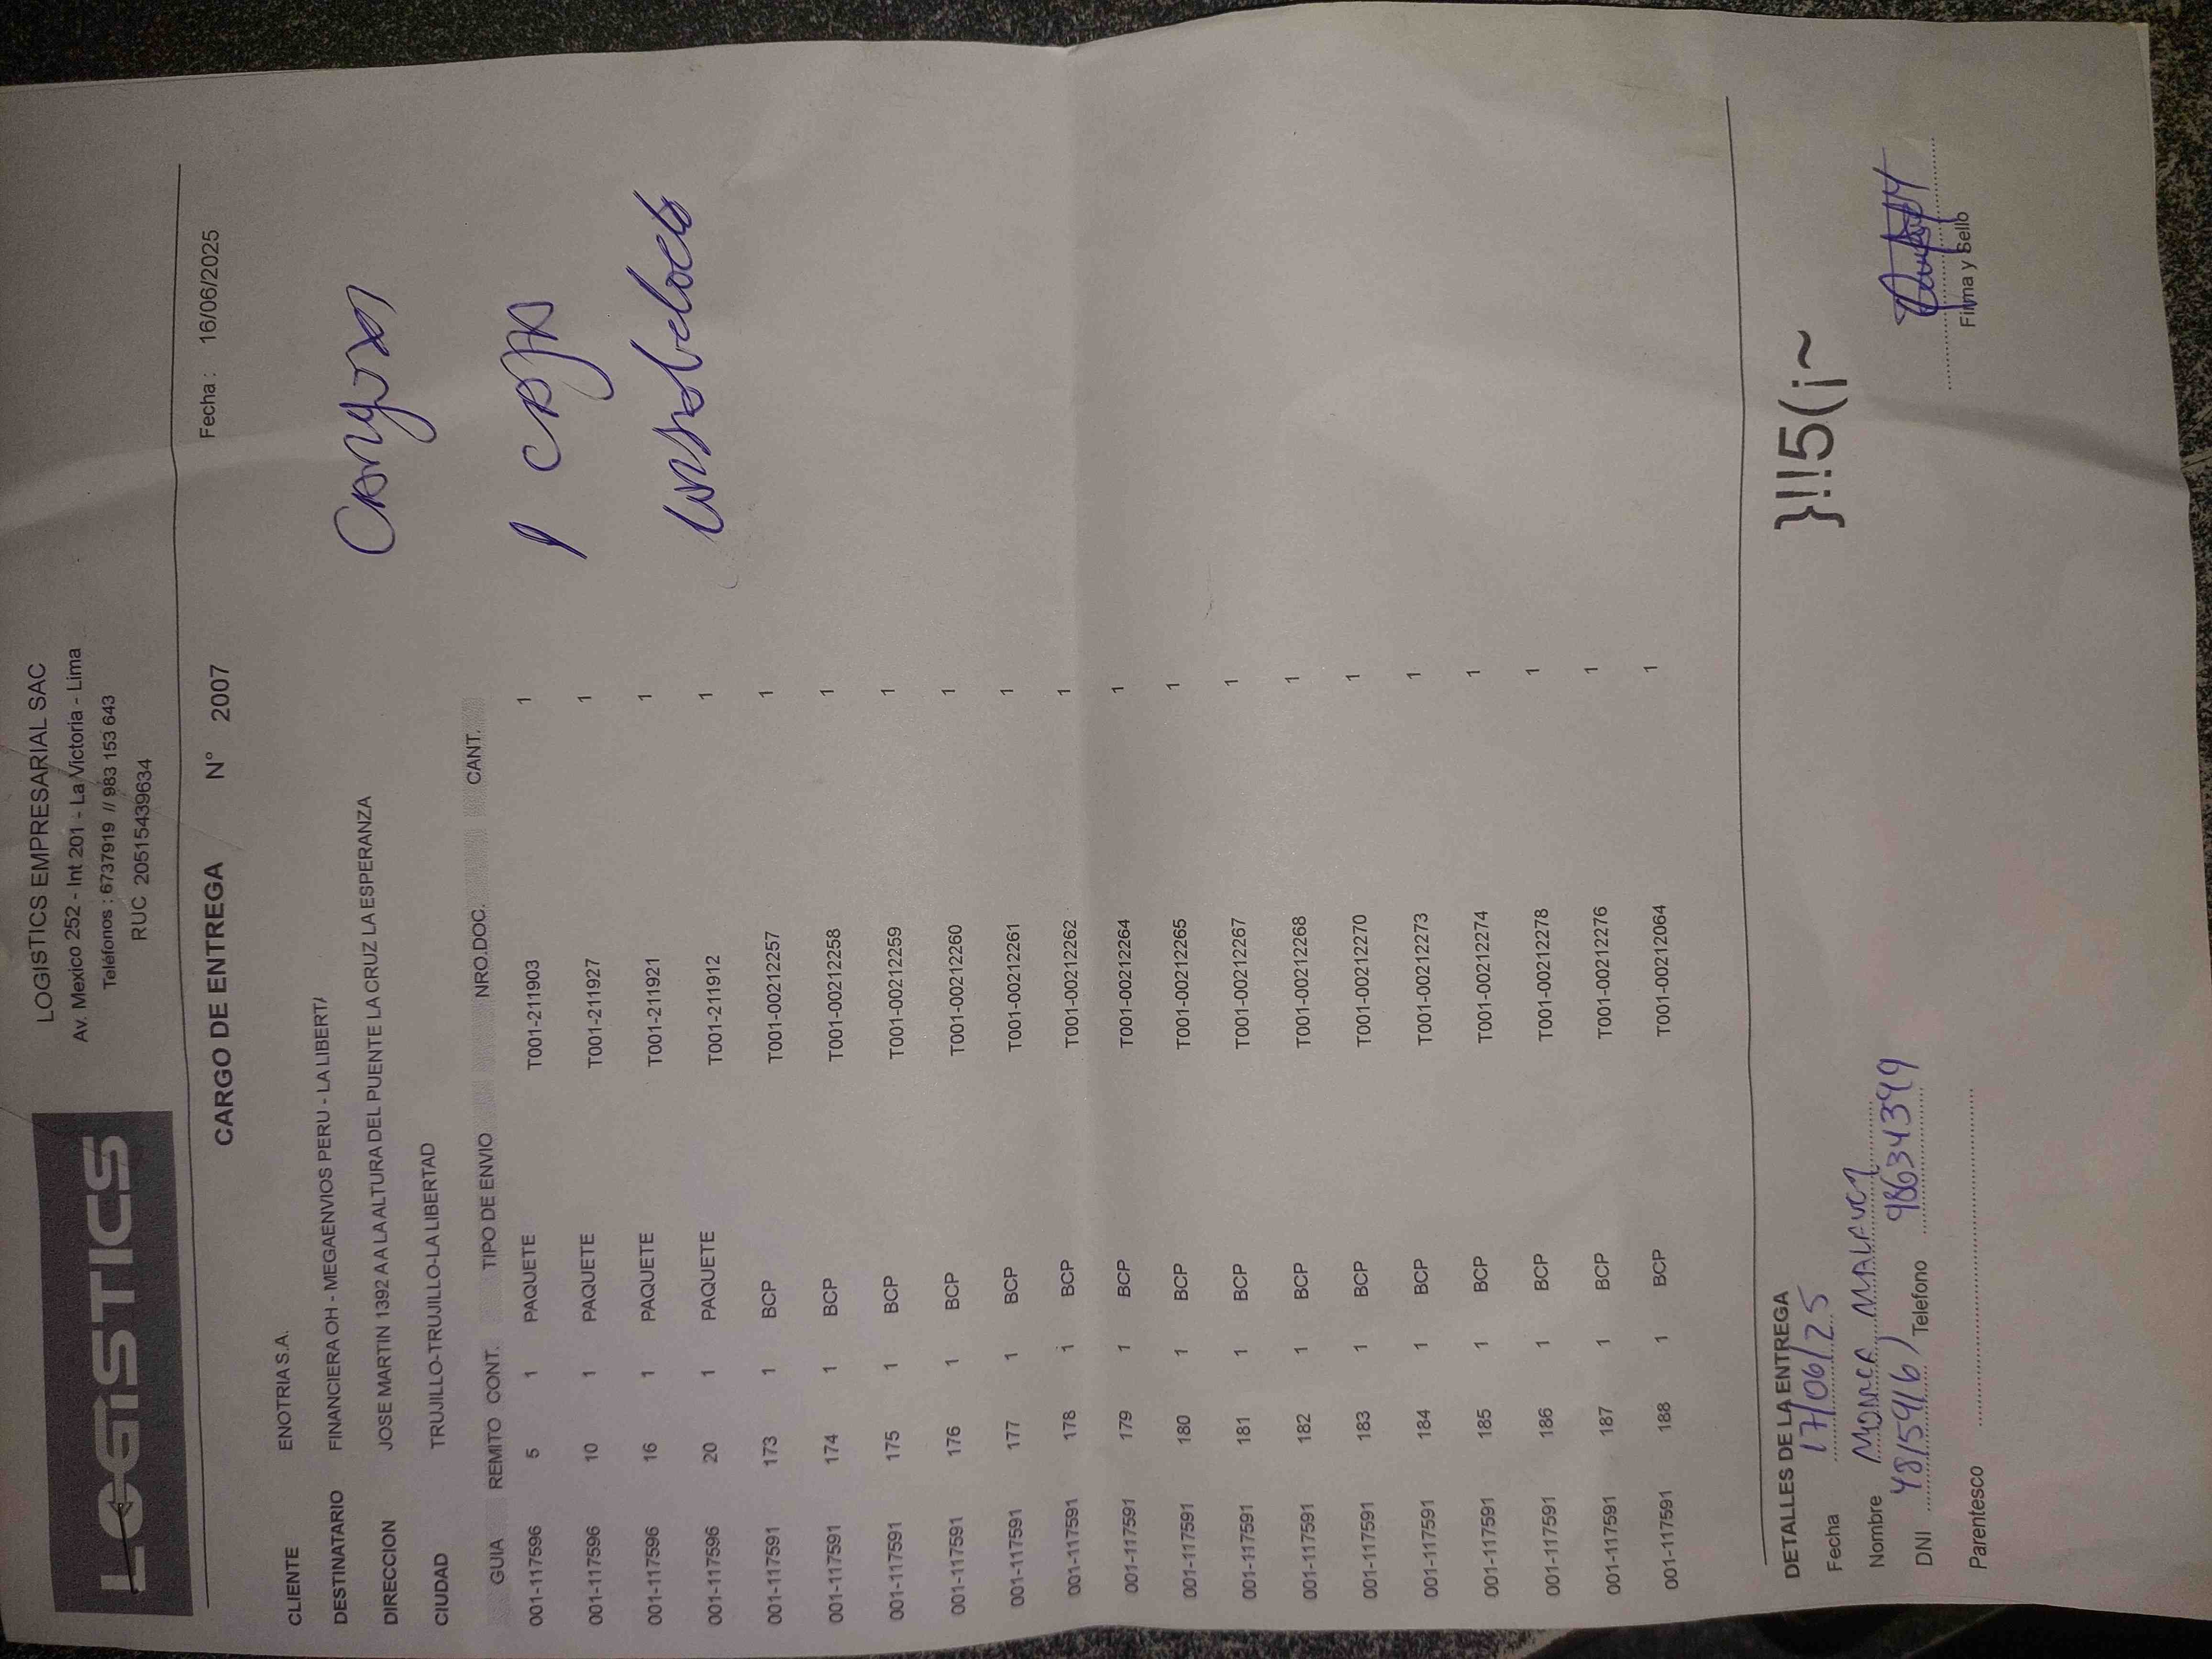 LOGISTICS
LOGISTICS EMPRESARIAL SAC
Av. Mexico 252 - Int 201 - La Victoria - Lima
Teléfonos : 6737919 // 983 153 643
RUC 20515439634
CARGO DE ENTREGA N° 2007 Fecha : 16/06/2025
CLIENTE ENOTRIA S.A.
DESTINATARIO FINANCIERA OH - MEGAENVIOS PERU - LA LIBERT/
DIRECCION JOSE MARTIN 1392 A A LA ALTURA DEL PUENTE LA CRUZ LA ESPERANZA
CIUDAD TRUJILLO-TRUJILLO-LA LIBERTAD
GUIA REMITO CONT. TIPO DE ENVIO NRO.DOC. CANT.
001-117596 5 1 PAQUETE T001-211903 1
001-117596 10 1 PAQUETE T001-211927 1
001-117596 16 1 PAQUETE T001-211921 1
001-117596 20 1 PAQUETE T001-211912 1
001-117591 173 1 BCP T001-00212257 1
001-117591 174 1 BCP T001-00212258 1
001-117591 175 1 BCP T001-00212259 1
001-117591 176 1 BCP T001-00212260 1
001-117591 177 1 BCP T001-00212261 1
001-117591 178 1 BCP T001-00212262 1
001-117591 179 1 BCP T001-00212264 1
001-117591 180 1 BCP T001-00212265 1
001-117591 181 1 BCP T001-00212267 1
001-117591 182 1 BCP T001-00212268 1
001-117591 183 1 BCP T001-00212270 1
001-117591 184 1 BCP T001-00212273 1
001-117591 185 1 BCP T001-00212274 1
001-117591 186 1 BCP T001-00212278 1
001-117591 187 1 BCP T001-00212276 1
001-117591 188 1 BCP T001-00212064 1
1 caja
DETALLES DE LA ENTREGA
Fecha 17/06/25
}!!5(¡~
Nombre
DNI Telefono 986343949
Parentesco
Firma y Sello